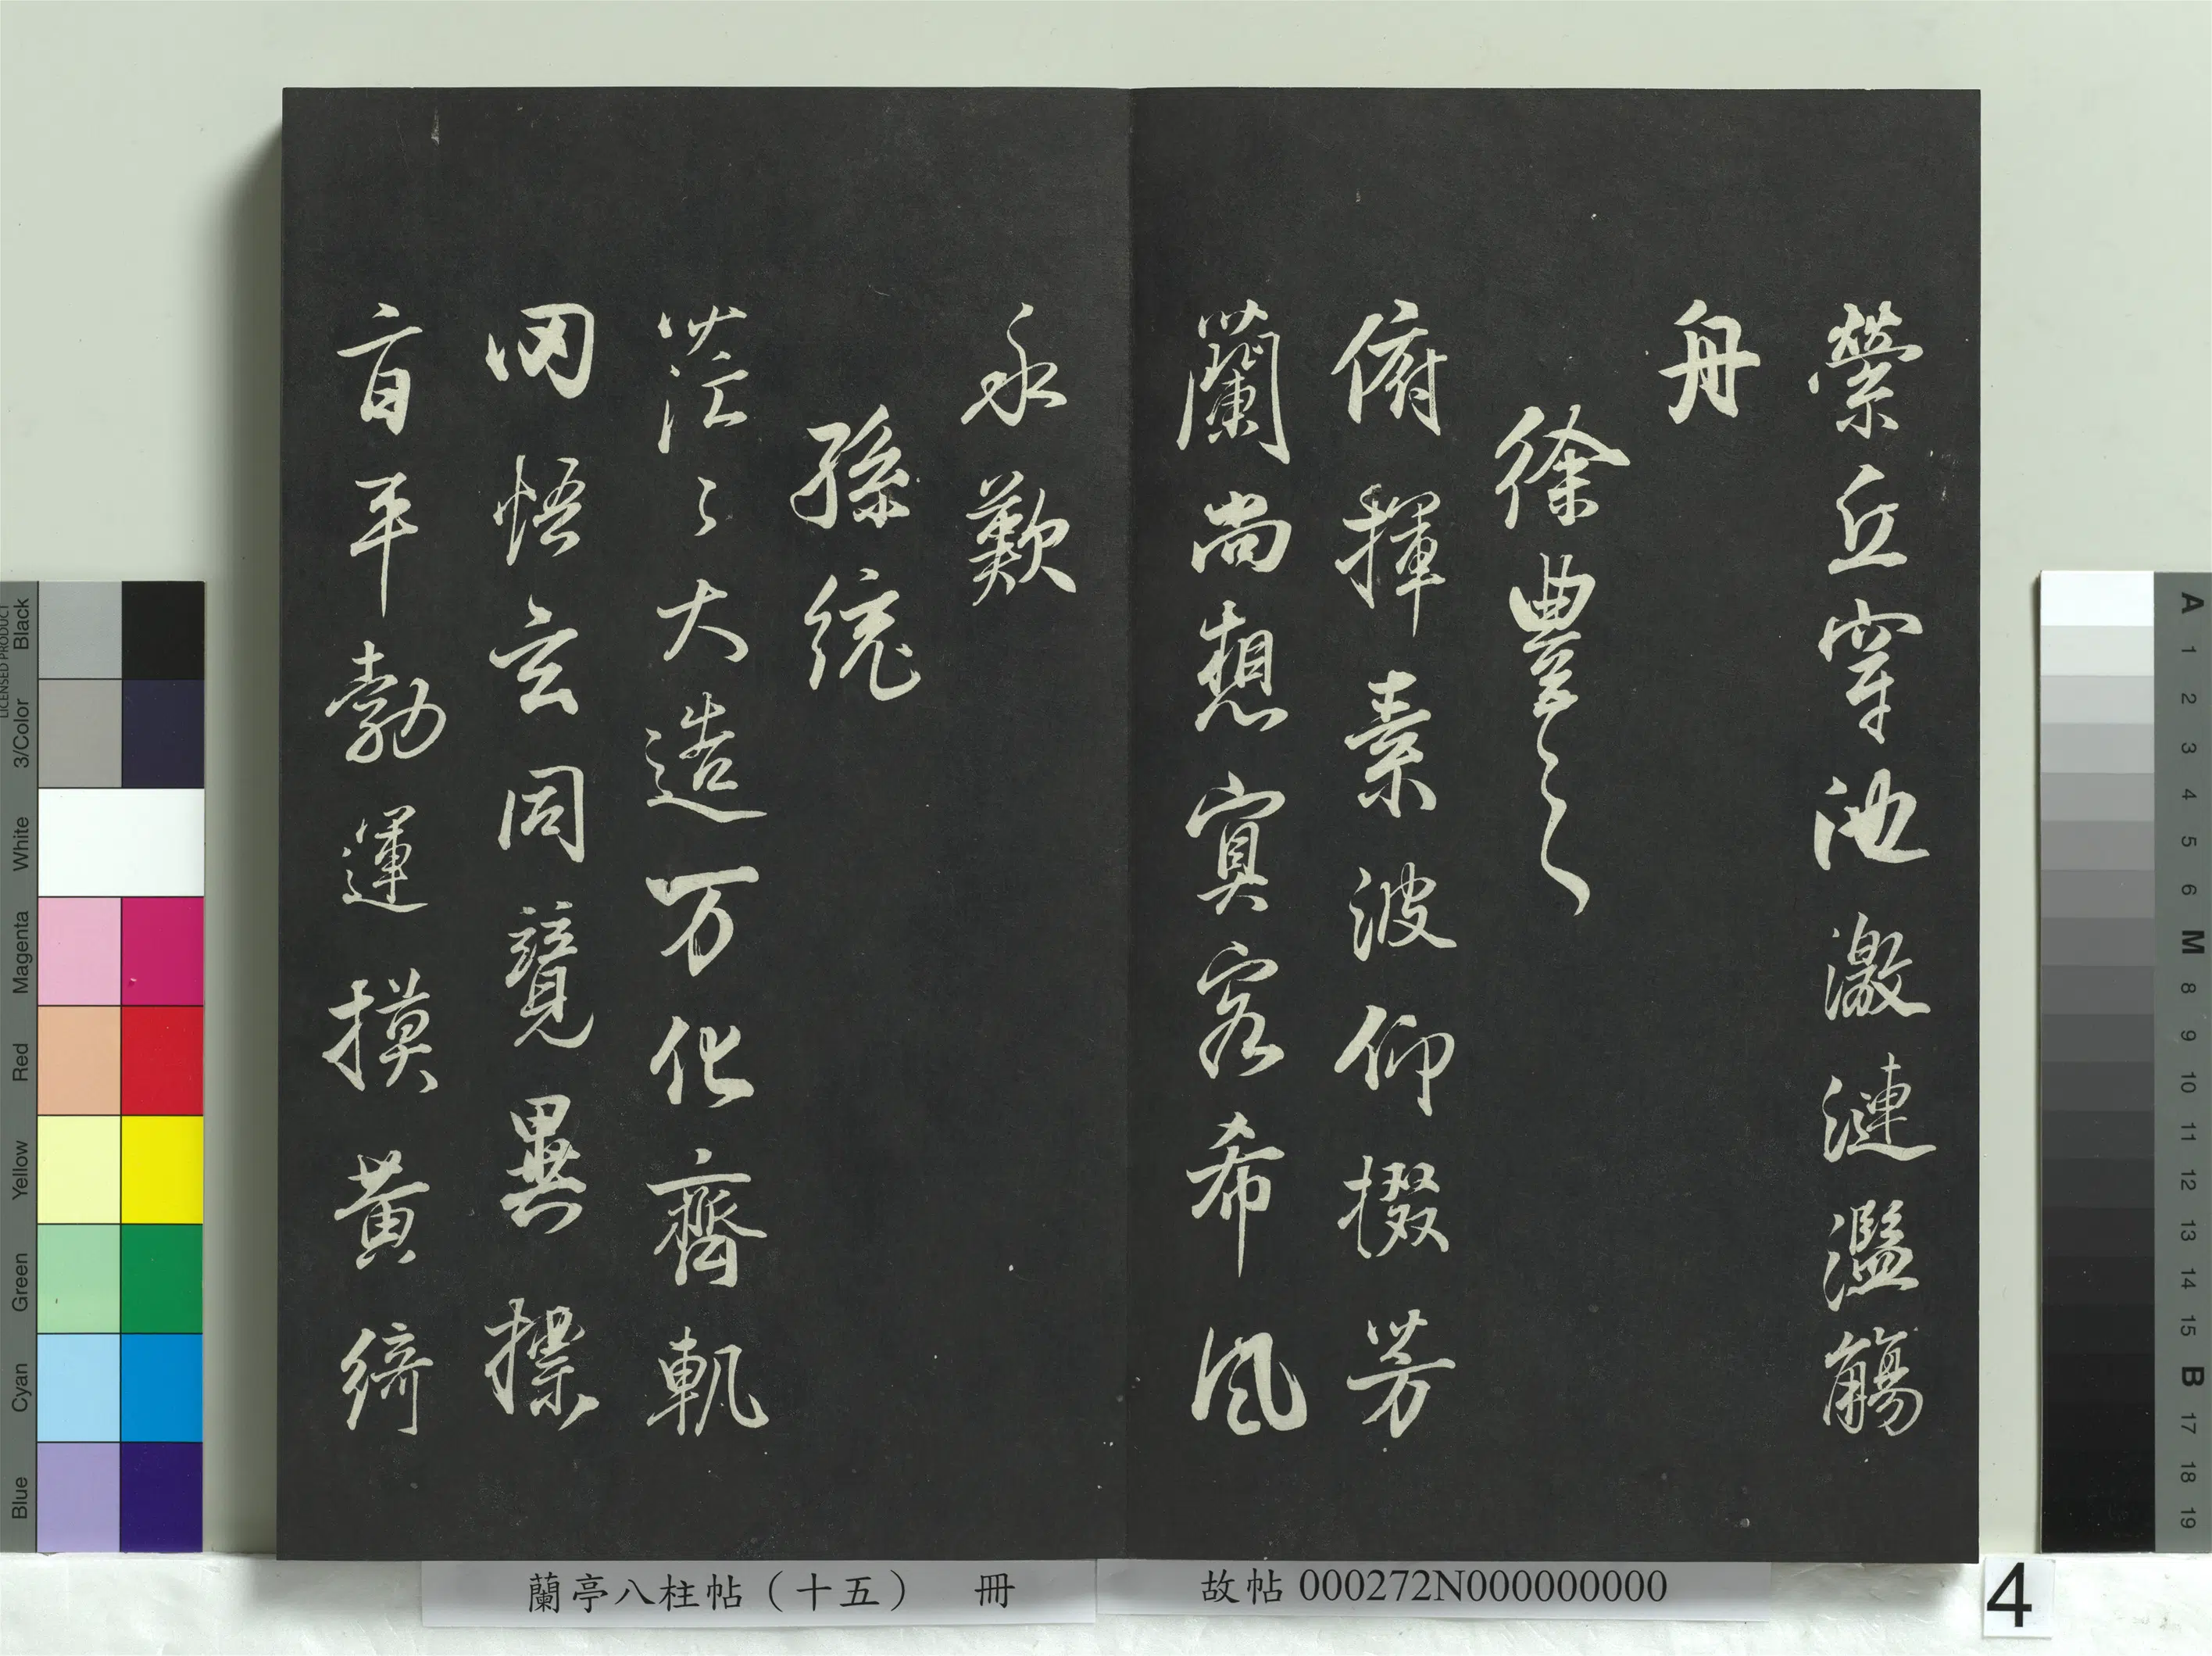 縈丘穿池激漣濫觴
舟
徐豐之
俯揮素波仰掇芳
蘭尚想嘉客希風
永歎
孫統
茫〻大造万化齊軌
罔悟玄同競異摽
盲平勃運摸黃綺
蘭亭八柱帖（十五） 冊
故帖 000272N000000000
4
LICENSED PRODUCT
Black
3/Color
White
Magenta
Red
Yellow
Green
Cyan
Blue
A
1
2
3
4
5
6
M
8
9
10
11
12
13
14
15
B
17
18
19